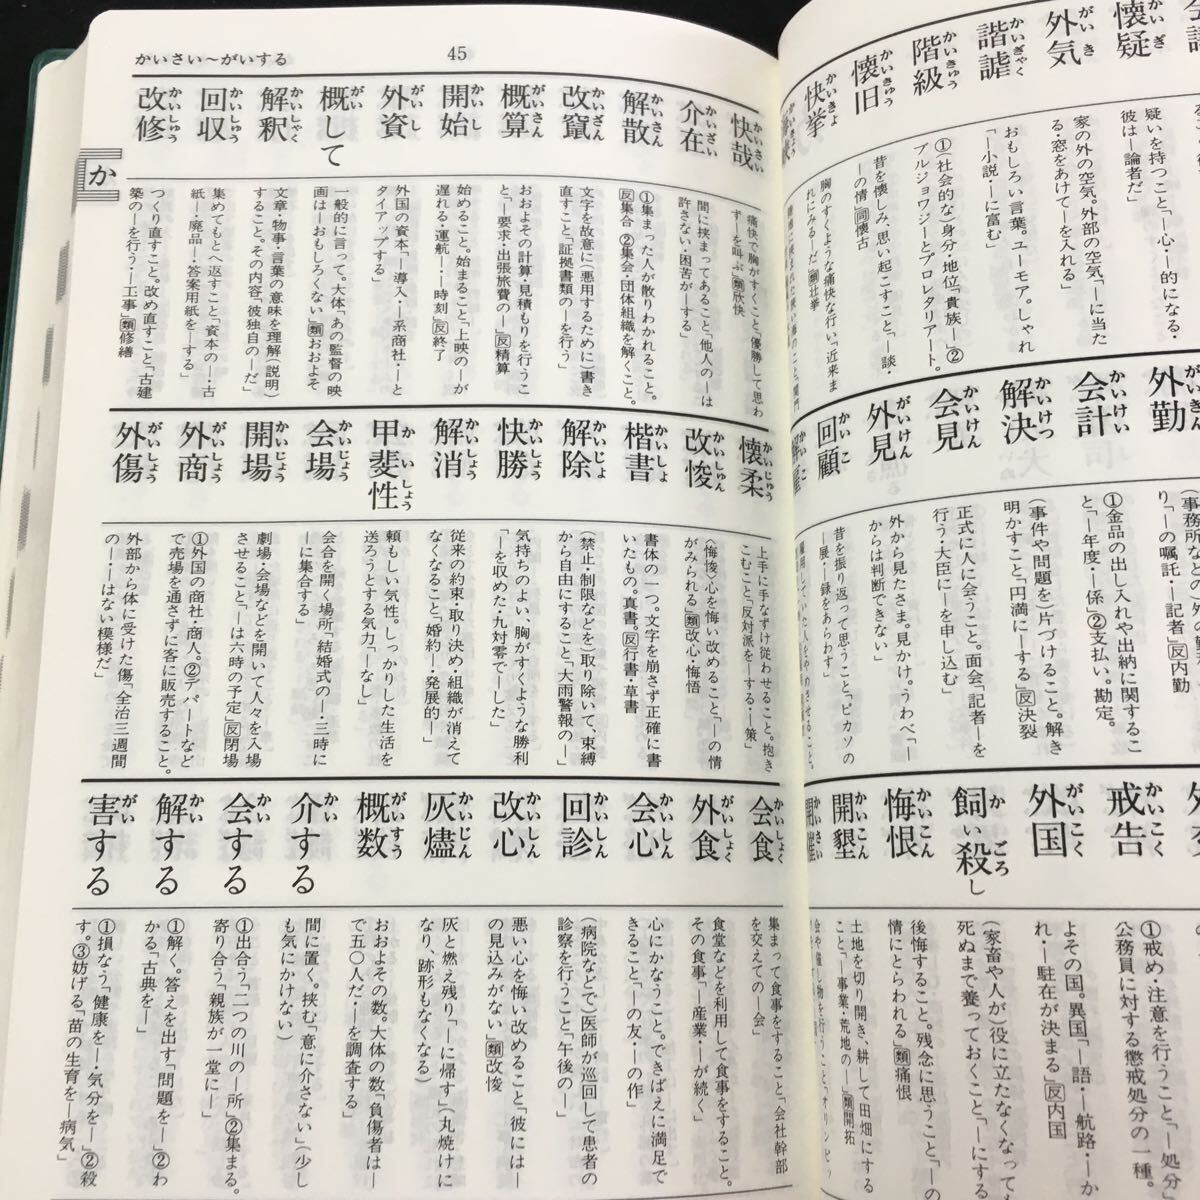 懐疑
かいぎ
疑いを持つこと「―心・―的になる・
彼は―論者だ」
外気
がいき
家の外の空気。外部の空気「―に当た
る・窓をあけて―を入れる」
諧謔
かいぎゃく
おもしろい言葉。ユーモア。しゃれ
「―小説・―に富む」
階級
かいきゅう
①(社会的な)身分・地位「貴族―」②
ブルジョワジーとプロレタリアート。
懐旧
かいきゅう
昔を懐しみ、思い起こすこと「―談・
―の情」同懐古
快挙
かいきょ
胸のすくような痛快な行い「近来ま
れにみる―だ」類壮挙
外勤
(事務所などの)外の
り「―の嘱託・―記者」反内勤
会計
かいけい
①金品の出し入れや出納に関するこ
と「―年度・―係」②支払い。勘定。
解決
かいけつ
(事件や問題を)片づけること。解き
明かすこと「円満に―する」反決裂
会見
かいけん
正式に人に会うこと。面会「記者―を
行う・大臣に―を申し込む」
外見
がいけん
外から見たさま。見かけ。うわべ「―
からは判断できない」
回顧
かいこ
昔を振り返って思うこと「ピカソの
―展・―録をあらわす」
戒告
かいこく
①戒め・注意を行うこと「―処分」
公務員に対する懲戒処分の一種。
外国
がいこく
よその国。異国「―語・―航路・―か
れ・―駐在が決まる」反内国
飼い殺し
かいごろし
(家畜や人が)役に立たなくなっても
死ぬまで養っておくこと「―にする」
悔恨
かいこん
後悔すること。残念に思うこと「―の
情にとらわれる」類痛恨
開墾
かいこん
土地を切り開き、耕して田畑にする
こと「―事業・荒地の―」類開拓
開催
かいさい
かいさい～がいする
45
か
快哉
かいさい
痛快で胸がすくこと「優勝して思わ
ず―を叫ぶ」類欣快
介在
かいざい
間に挟まってあること「他人の―は
許さない・困苦が―する」
解散
かいさん
①集まった人が散りわかれること。
反集合 ②集会・団体組織を解くこと。
改竄
かいざん
文字を故意に(悪用するために)書き
直すこと「証拠書類の―を行う」
概算
がいさん
おおよその計算・見積もりを行うこ
と「―要求・出張旅費の―」反精算
開始
かいし
始めること。始まること「上映の―が
遅れる・運航―・―時刻」反終了
外資
がいし
外国の資本「―導入・―系商社・―と
タイアップする」
概して
がいして
一般的に言って。大体「あの監督の映
画は―おもしろくない」類おおよそ
解釈
かいしゃく
文章・物事・言葉の意味を理解(説明)
すること。その内容「彼独自の―だ」
回収
かいしゅう
集めてもとへ返すこと「資本の―・古
紙―・廃品―・答案用紙を―する」
改修
かいしゅう
つくり直すこと。改め直すこと「古建
築の―を行う・―工事」類修繕
懐柔
かいじゅう
上手に手なずけ従わせること。抱き
こむこと「反対派を―する・―策」
改悛
かいしゅん
(悔悛)心を悔い改めること「―の情
がみられる」類改心・悔悟
楷書
かいしょ
書体の一つ。文字を崩さず正確に書
いたもの。真書。反行書・草書
解除
かいじょ
(禁止・制限などを)取り除いて、束縛
から自由にすること「大雨警報の―」
快勝
かいしょう
気持ちのよい、胸がすくような勝利
「―を収めた・九対零で―した」
解消
かいしょう
従来の約束・取り決め・組織が消えて
なくなること「婚約―・発展的―」
甲斐性
かいしょう
頼もしい気性。しっかりした生活を
送ろうとする気力「―なし」
会場
かいじょう
会合を開く場所「結婚式の―・三時に
―に集合する」
開場
かいじょう
劇場・会場などを開いて人々を入場
させること「―は六時の予定」反閉場
外商
がいしょう
①外国の商社・商人。②デパートなど
で売場を通さずに客に販売すること。
外傷
がいしょう
外部から体に受けた傷「全治三週間
の―・―はない模様だ」
会食
かいしょく
集まって食事をすること「会社幹部
を交えての―会」
外食
がいしょく
食堂などを利用して食事をすること。
その食事「―産業・―が続く」
会心
かいしん
心にかなうこと。できばえに満足で
きること「―の友・―の作」
回診
かいしん
(病院などで)医師が巡回して患者の
診察を行うこと「午後の―」
改心
かいしん
悪い心を悔い改めること「彼には―
の見込みがない」類改悛
灰燼
かいじん
灰と燃え残り「―に帰す」(丸焼けに
なり、跡形もなくなる)
概数
がいすう
おおよその数。大体の数「負傷者は―
で五〇人だ・―を調査する」
介する
かいする
間に置く。挟む「意に介さない」(少し
も気にかけない)
会する
かいする
①出合う「二つの川の―所」②集まる。
寄り合う「親族が一堂に―」
解する
かいする
①解く。答えを出す「問題を―」②わ
かる「古典を―」
害する
がいする
①損なう「健康を―・気分を―」②殺
す。③妨げる「苗の生育を―病気」